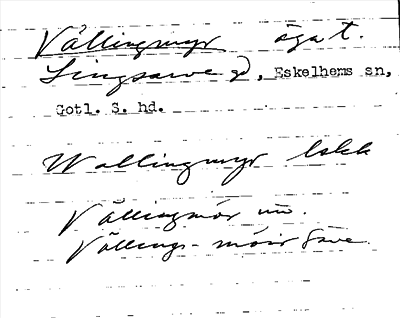 Vällingmyr äga t.
Lingsarve gd, Eskelhems sn,
Gotl. S. hd.
Wallingmyr Lskk
Vällingmör uu.
Vällings-möir Säve